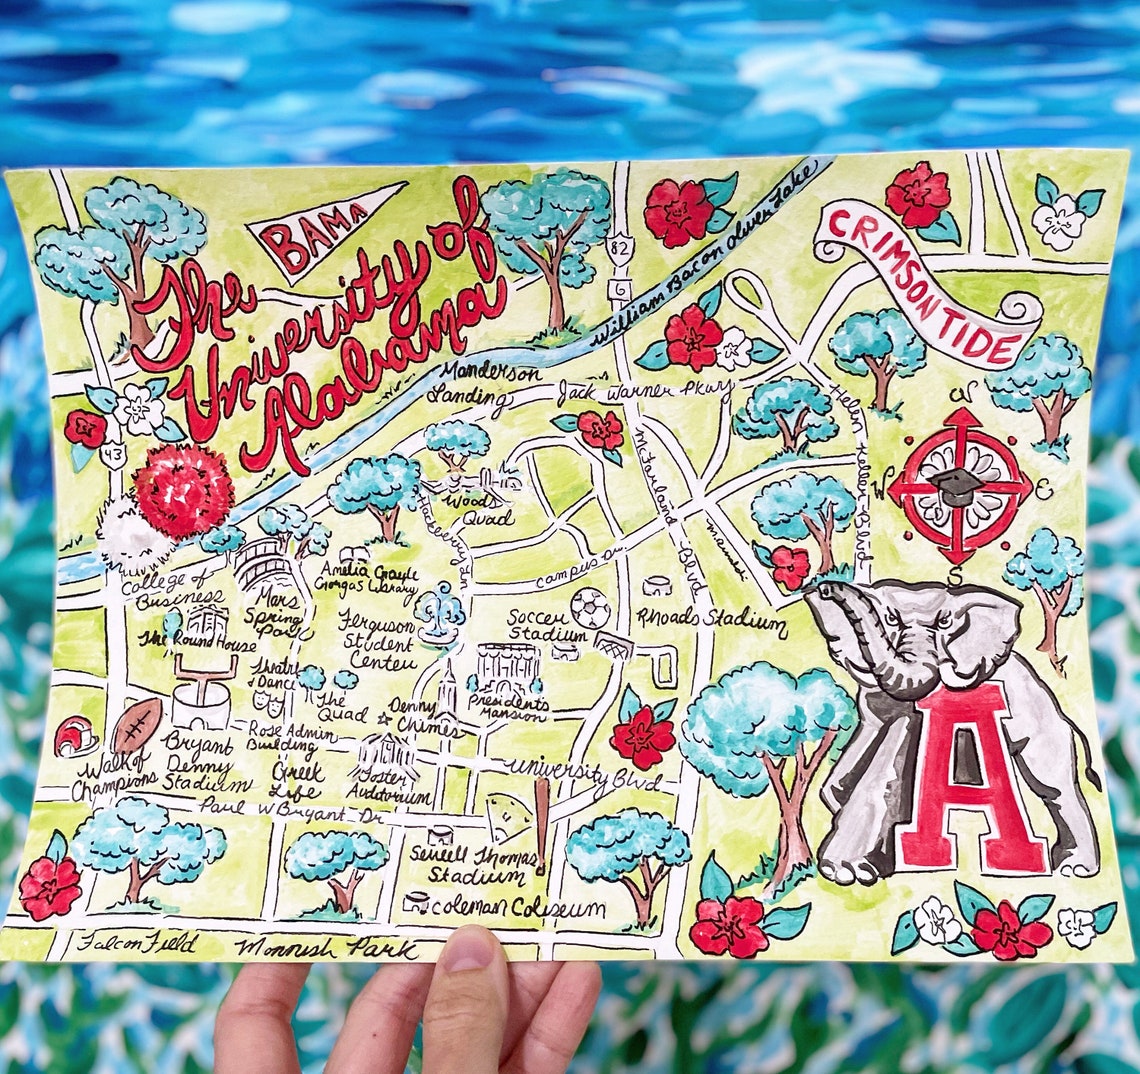 BAMA
The
University of
Alabama
CRIMSON TIDE
82
6
43
William Bacon Oliver Lake
Manderson
Landing
Jack Warner Pkwy
Helen Keller Blvd
McFarland Blvd
Hackberry Ln
Woods
Quad
Campus
N
W
E
S
College of
Business
Mars
Spring
Park
Amelia Gayle
Gorgas Library
The Round House
Ferguson
Student
Center
Soccer
Stadium
Rhoads Stadium
Theatre
& Dance
The
Quad
Denny
Chimes
Presidents
Mansion
Walk of
Champions
Bryant
Denny
Stadium
Rose Admin
Building
Greek
Life
Foster
Auditorium
University Blvd
Paul W Bryant Dr
Sewell Thomas
Stadium
Coleman Coliseum
Falcon Field
Monnish Park
A